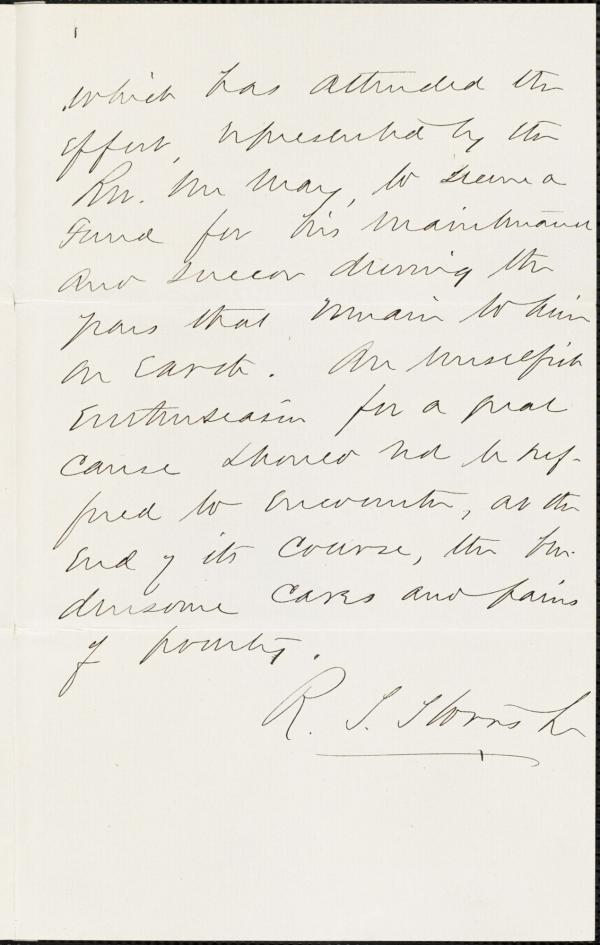 which has attended the
effort, represented by the
Rev. Mr May, to secure a
Fund for his maintenance
and succor during the
years that remain to him
on Earth. An unselfish
Enthusiasm for a great
cause should not be suf-
fered to encounter, at the
End of its course, the bur-
densome cares and pains
of poverty.
R. S. Storrs Jr